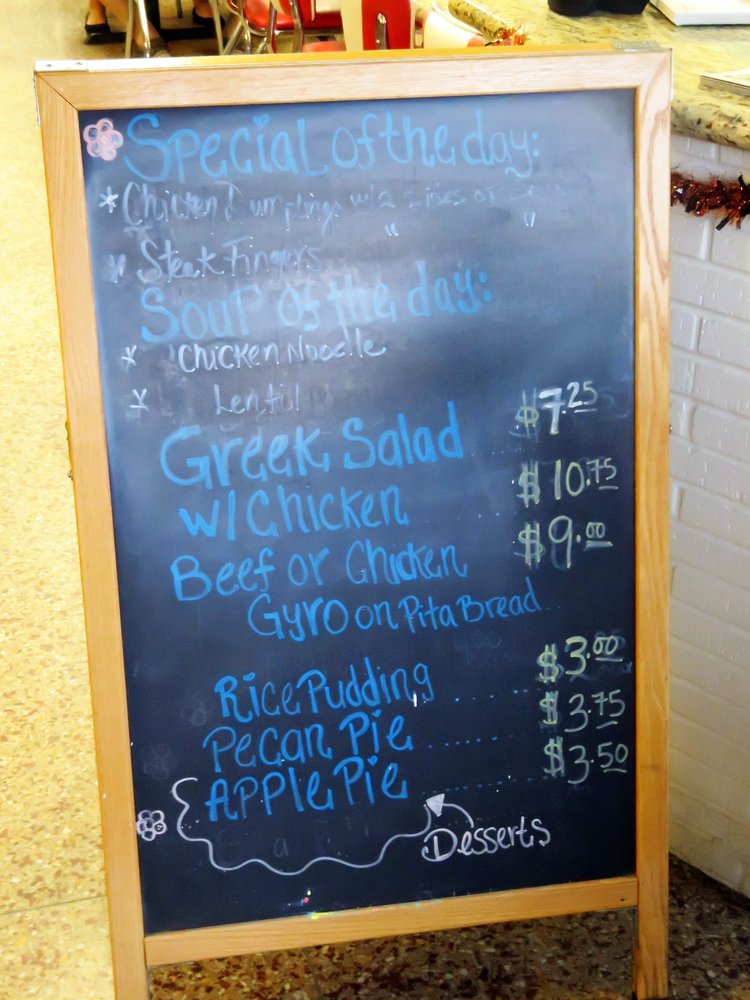 Special of the day:
* Chicken Dumplings w/2 sides or
" "
* Steak Fingers
Soup of the day:
* Chicken Noodle
* Lentil
Greek Salad ..... $7.25
w/ Chicken ..... $10.75
Beef or Chicken $9.00
Gyro on Pita Bread...
Rice Pudding ....... $3.00
Pecan Pie ....... $3.75
Apple Pie ....... $3.50
Desserts